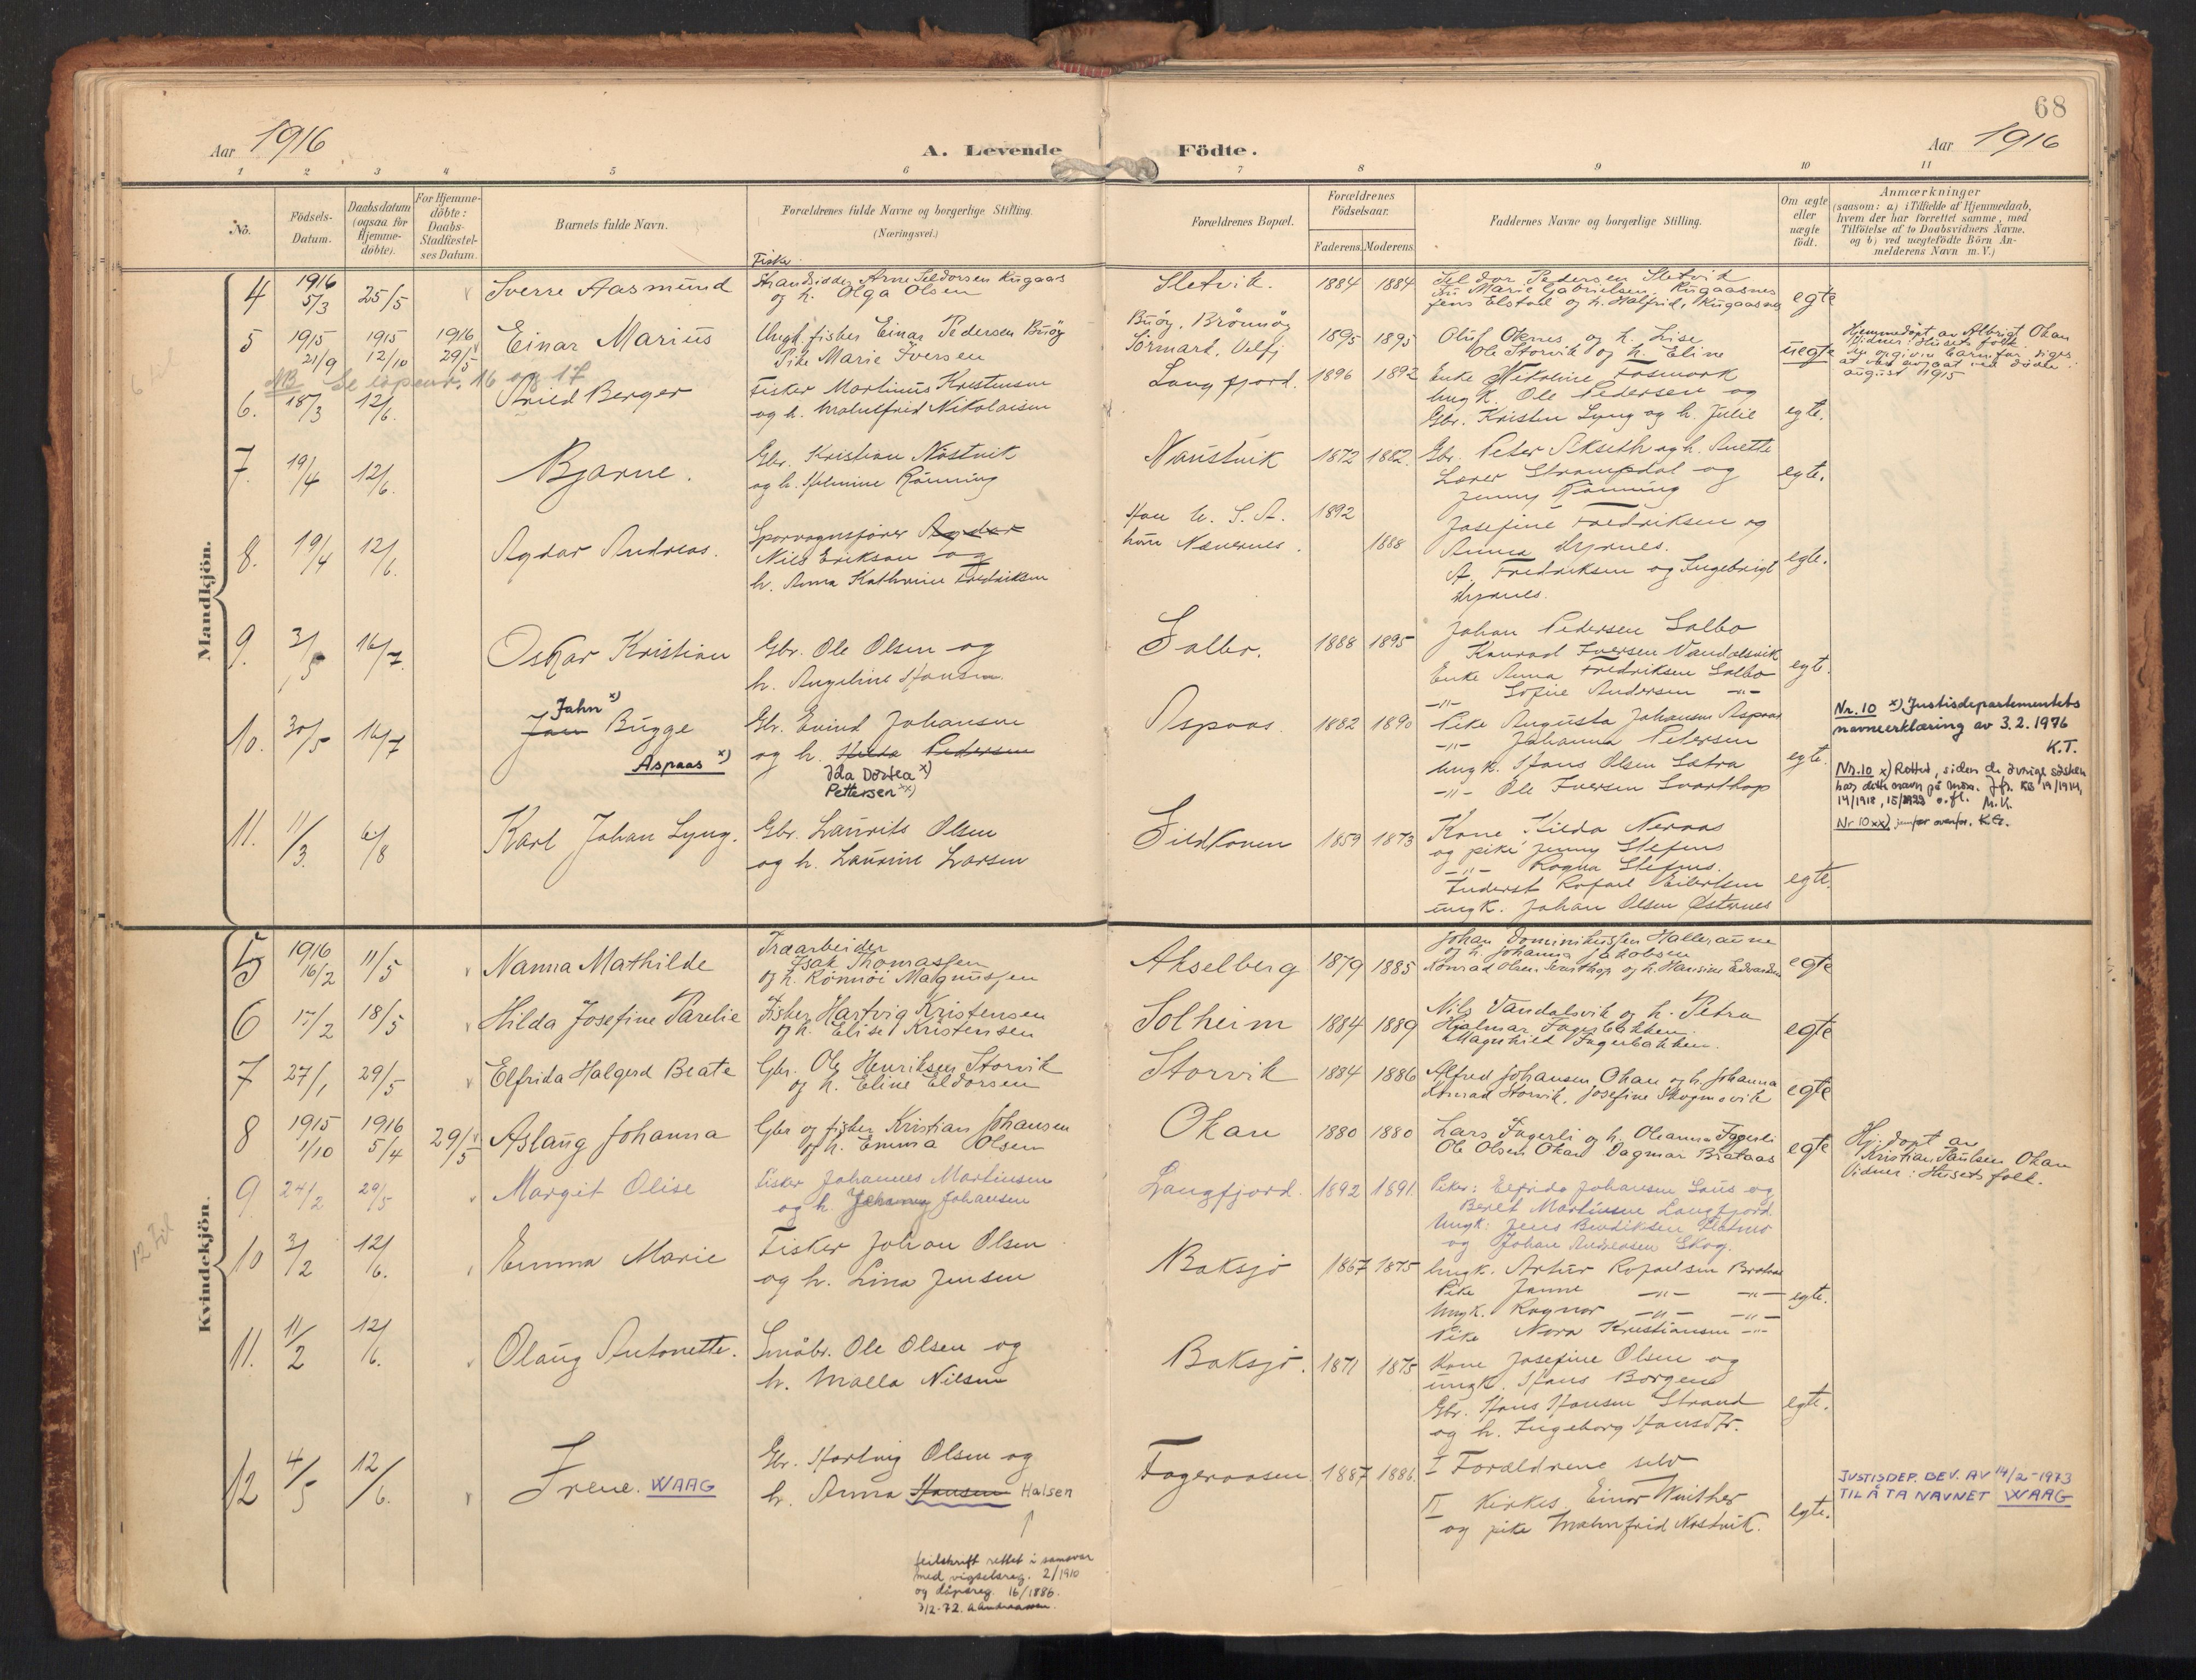 68
Aar 1916
A. Levende Födte.
Aar 1916
1 2 3 4 5 6 7 8 9 10 11
No.
Födsels-Datum.
Daabsdatum (ogsaa for Hjemme-döbte).
For Hjemme-döbte: Daabs-Stadfæstel-ses Datum.
Barnets fulde Navn.
Forældrenes fulde Navne og borgerlige Stilling. (Næringsvei.)
Forældrenes Bopæl.
Forældrenes Födselsaar.
Faderens. Moderens.
Faddernes Navne og borgerlige Stilling.
Om ægte eller uægte födt.
Anmærkninger
(saasom: a) i Tilfælde af Hjemmedaab,
hvem der har forrettet samme, med
Tilföielse af to Daabsvidners Navne.
og b) ved uægtefödte Börn An-
melderens Navn m. V.)
Mandkjön.
4 1916 5/3 25/5 Sverre Aasmund
Fisker
Strandsidder Arne Seldorsen Kugaas
og h. Olga Olsen
Sletvik. 1884 1884
Seldor Pedersen Sletvik
Fru Marie Gabrielsen, Kugaasnes
Jens Elstall og h. Halfrid, Kugaasnes
egte
5 1915 21/9 1915 12/10 1916 29/5 Einar Marius
Ungk. fisker Einar Pedersen Buöy
Pike Marie Iversen
Buöy, Brönnöy
Sörmark, Velfj
1895 1895
Oluf Oknes og h. Lise
Ole Storvik og h. Eline
uegte
Hjemmedöpt av Albrigt Okan
Vidner: Husets folk
august 1915
NB Se löpenr. 16 og 17
6. 18/3 12/6. Arild Berger
Fisker Martinus Kristensen
og h. Malulfrid Nikolaisen
Langfjord. 1896 1892
Enke Nikoline Fosmork
Ungk. Ole Pedersen og
Gbr. Kristen Lyng og h. Julie
egte.
7. 19/4 12/6. Bjarne.
Gbr. Kristian Nöstvik
og h. Hilmine Rönning
Naustvik 1872 1882.
Gbr. Peter Akseth og h. Anette
Lærer Strompdal og
Jenny Rönning
egte.
8. 19/4 12/6. Agdar Andreas.
Sporvognsförer Agdar
Nils Erikson og
h. Anna Kathrine Fredriksen
Han U. S. A. 1892
hun Nævernes. 1888
Josefine Fredriksen og
Anna Myrnes.
A. Fredriksen og Ingebrigt
Myrnes.
egte.
9. 3/5 16/7. Oskar Kristian
Gbr. Ole Olsen og
h. Angeline Hansen.
Salbo. 1888 1895
Johan Pedersen Salbo
Konrad Iversen Vandalsvik
Enke Anna Fredriksen Salbo
-"- Sofie Andersen -"-
egt.
10. 30/5 16/7 Jahn x)
Jan Bugge
Aspaas x)
Gbr. Evind Johansen
og h. Hilda Pedersen
Ida Dortea x)
Pettersen xx)
Aspaas 1882 1890
Pike Augusta Johansen Aspaas
-"- Johanna Petersen
Ungk. Hans Olsen Sætra
-"- Ole Iversen Svarthop
egte.
Nr. 10 x) Justisdepartementets
navneerklæring av 3.2.1976
K.T.
Nr. 10 x) Rettet, siden de övrige søsken
har dette navn på mora. Jfr. KB 19/1914,
14/1918, 15/1923 o.fl. M.K.
Nr 10 xx) jamfør ovenfor. K.G.
11. 11/3. 6/8 Karl Johan Lyng.
Gbr. Laurits Olsen
og h. Laurine Larsen
Sildvonen 1859 1873
Kone Hilda Neraas
og pike Jenny Stefens
-"- Ragna Stefens.
Inderst Rafael Eilertsen
ungk. Johan Olsen Østernes
egte.
Kvindekjön.
5 1916 16/2 11/5 Nanna Mathilde
Træarbeider
Isak Thomassen
og h. Rönnöi Magnussen
Akselberg 1879 1885
Johan Dominikussen Halleraune
og h. Johanna Jakobsen
Konrad Olsen Svarthop og h. Hansine Edvardsen
egte
6 17/2 18/5 Hilda Josefine Parelie
Fisker Hartvig Kristensen
og h. Elise Kristensen
Solheim 1884 1889
Nils Vandalsvik og h. Petra
Hjalmar Fagerbakken.
Magnhild Fagerbakken.
egte
7 27/1 29/5 Elfrida Halgerd Beate
Gbr. Ole Henriksen Storvik
og h. Eline Eldorsen
Storvik 1884 1886
Alfred Johansen Okan og h. Johanna
Konrad Storvik, Josefine Skogmovik
egte
8 1915 1/10 1916 5/4 29/5 Aslaug Johanna
Gbr og fisker Kristian Johansen
og h. Emma Olsen
Okan 1880 1880
Lars Fagerli og h. Oleanna Fagerli
Ole Olsen Okan Dagmar Brataas
egte
Hj. döpt av
Kristian Paulsen Okan
Vidner: Husets folk.
9 24/2 29/5 Margit Olise
Fisker Johannes Martinusen
og h. Johanna Johansen
Langfjord. 1892 1891.
Piker: Elfrida Johansen Saus og
Beret Martinusen Langfjord
Ungk: Jens Bendiksen Slatmo
og Johan Andreasen Skog.
10 3/2 12/6. Emma Marie
Fisker Johan Olsen
og h. Lina Jensen
Baksjö 1867 1875
Ungk. Artur Rafaelsen Brataas
Pike Janne -"- -"-
Ungk. Ragnar -"- -"-
Pike Nora Kristiansen -"-
egte.
11. 11/2 12/6. Olaug Antonette.
Småbr. Ole Olsen og
h. Malla Nilsen
Baksjö. 1871 1875
Kone Josefine Olsen og
ungk. Hans Borgen
Gbr. Hans Hansen Strand
og h. Ingeborg Hansdtr.
egte.
12 4/5 12/6. Irene. WAAG
Gbr. Hartvig Olsen og
h. Anna Hansen Halsen
Fageraasen 1887 1886.
I Forældrene selv
II Kirkes. Einar Winther
og pike Malmfrid Nöstvik.
egte.
JUSTISDEP. BEV. AV 14/2-1973
TIL Å TA NAVNET WAAG
feilskrift rettet i samsvar
med vigselsreg. 2/1910
og dåpsreg. 16/1886.
3/2-72. A Andreassen.
12